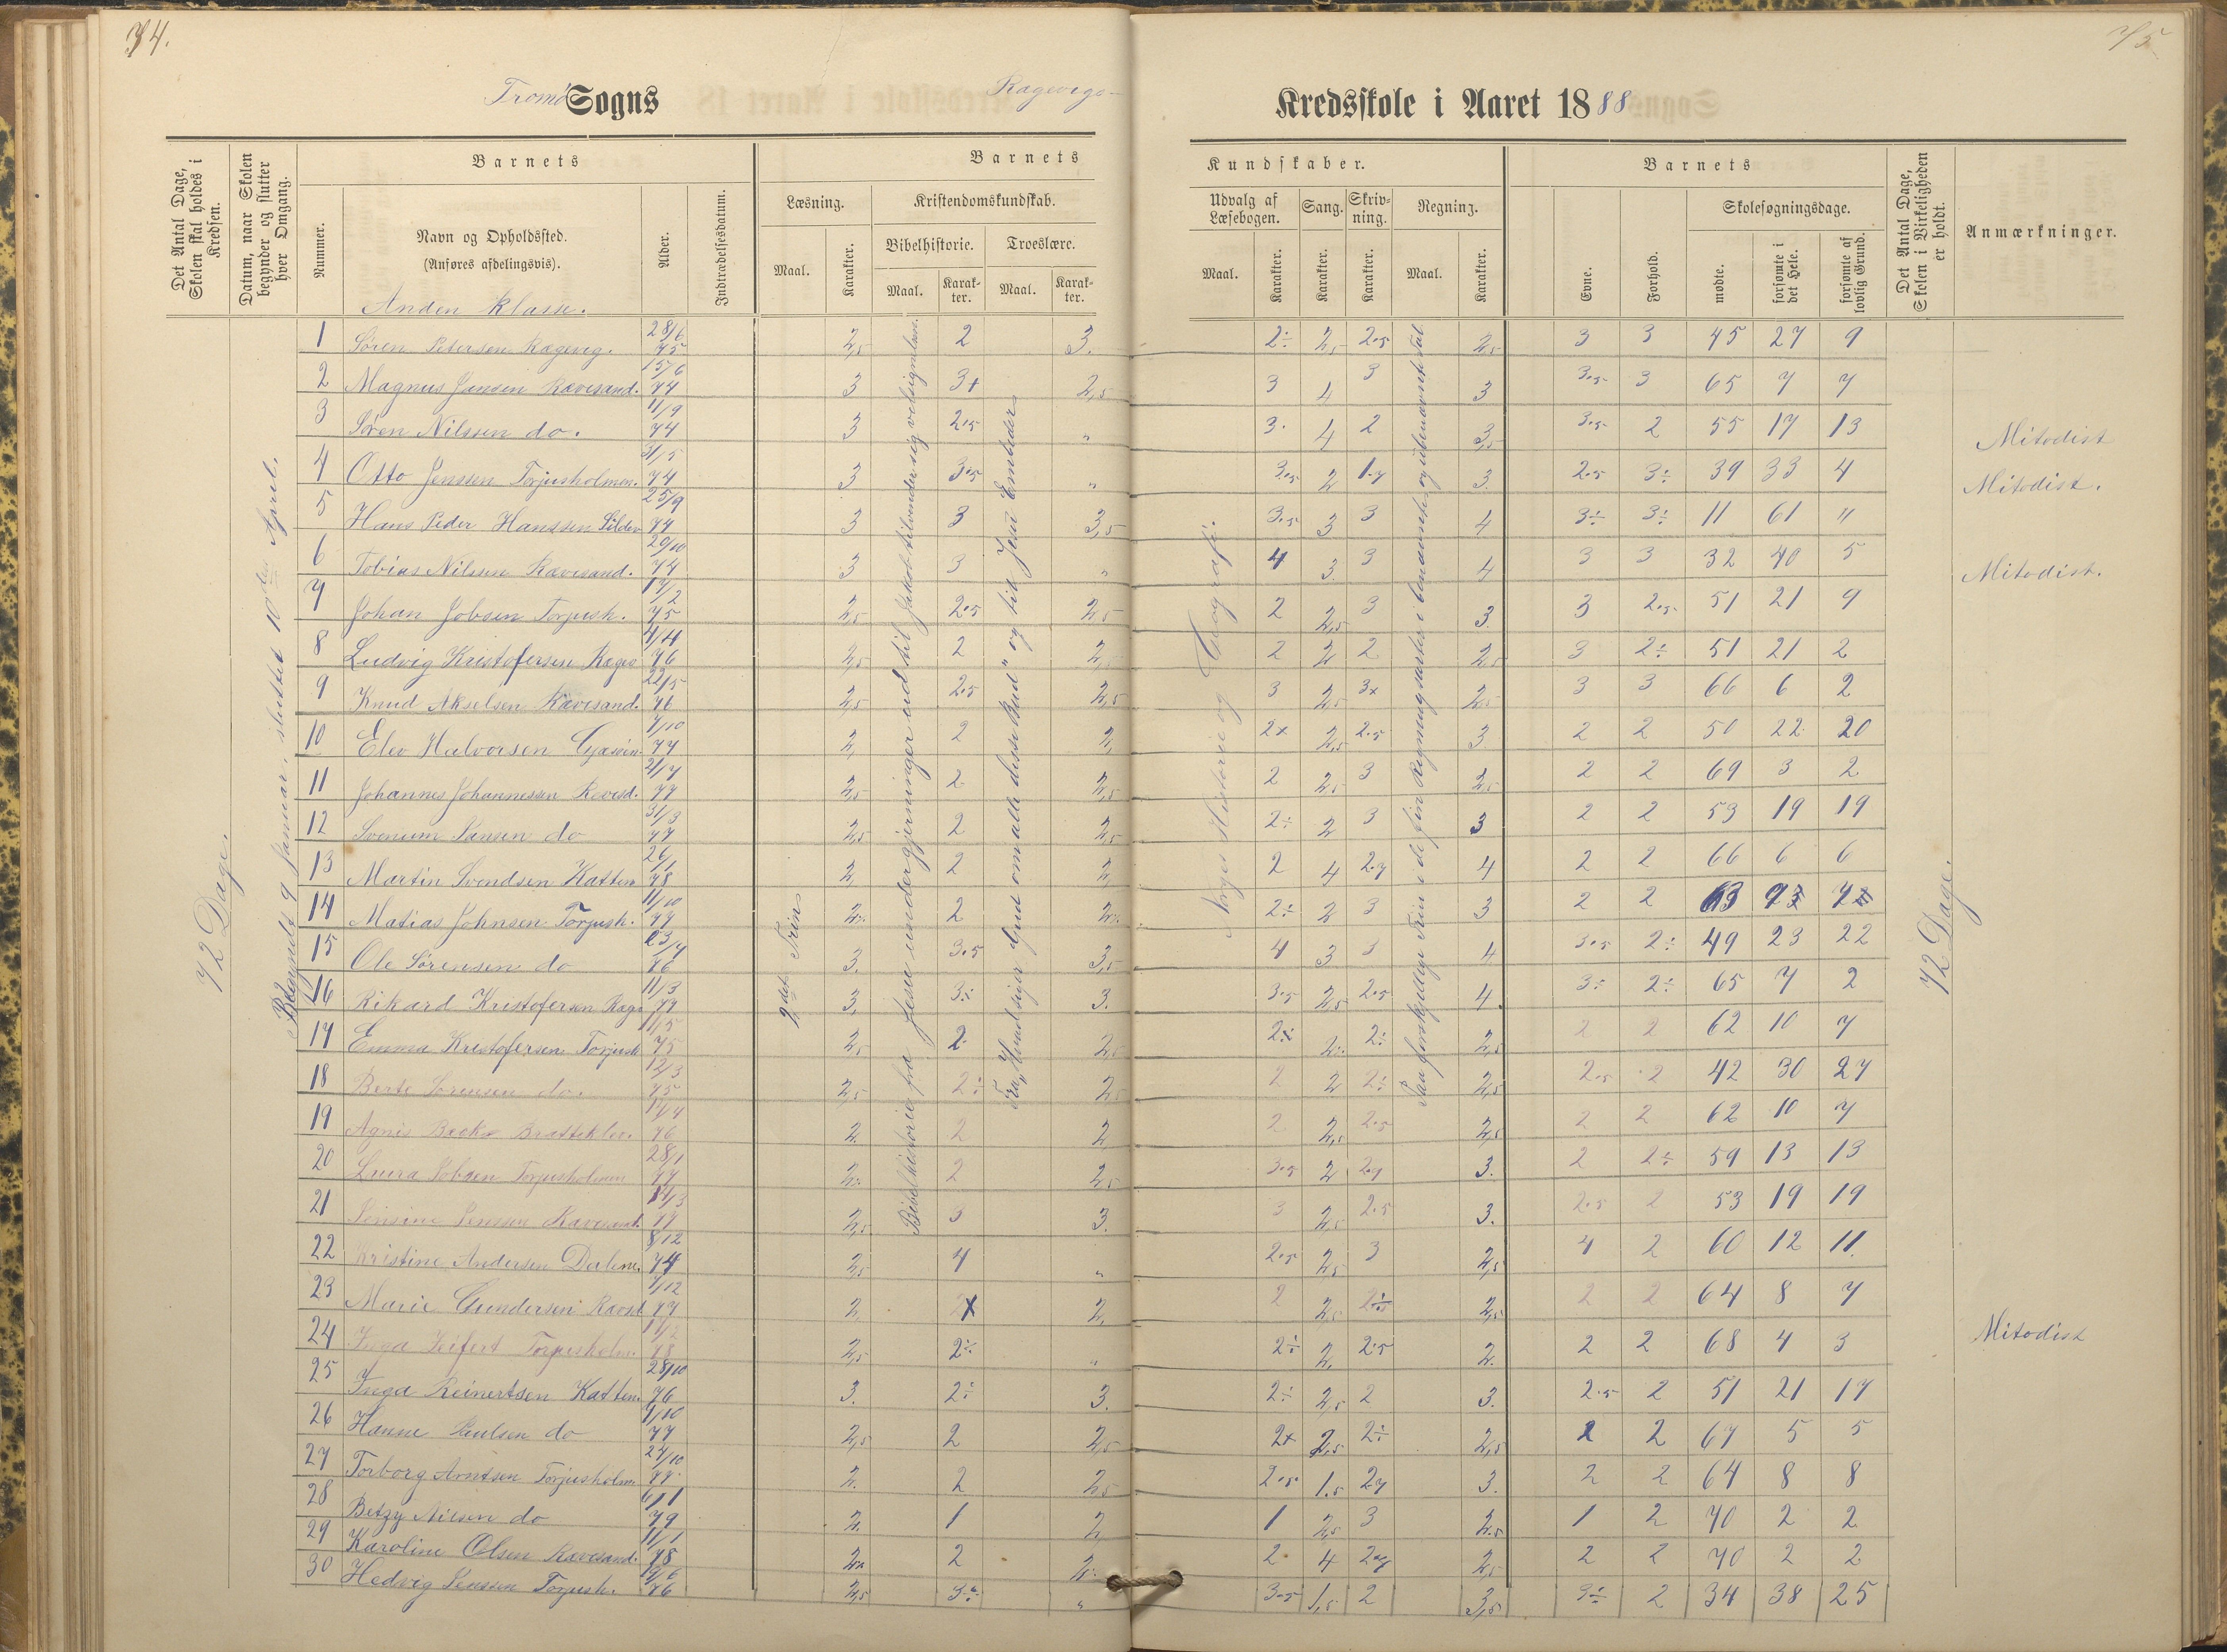 74.
75
Tromø Sogns Ragevigs- Kredsskole i Aaret 1888
Det Antal Dage, Skolen skal holdes i Kredsen.
Datum, naar Skolen begynder og slutter hver Omgang.
Barnets
Nummer.
Navn og Opholdssted.
(Anføres afdelingsvis).
Alder.
Indtrædelsesdatum.
Barnets Kundskaber.
Læsning.
Maal.
Karakter.
Kristendomskundskab.
Bibelhistorie.
Maal.
Karakter.
Troeslære.
Maal.
Karakter.
Udvalg af Læsebogen.
Maal.
Karakter.
Sang.
Karakter.
Skrivning.
Karakter.
Regning.
Maal.
Karakter.
Barnets
Evne.
Forhold.
Skolesøgningsdage.
mødte.
forsømte i det Hele.
forsømte af lovlig Grund.
Det Antal Dage, Skolen i Virkeligheden er holdt.
Anmærkninger.
Anden klasse.
72 Dage.
Begyndt 9 Januar, sluttet 10de April.
2det Trin
Bibelhistorie fra Jesu undergjerninger
Norges Historie og Geografi.
72 Dage.
1 Søren Petersen Ragevig. 28/6 75 2,5 2 3. 2÷ 2,5 2.5 2,5 3 3 45 27 9
2 Magnus Jensen Ravesand. 15/6 74 3 3+ 2,5 3 4 3 3 3.5 3 65 7 7
3 Søren Nilssen do. 11/9 74 3 2.5 " 3. 4 2 3,5 3.5 2 55 17 13 Mitodist
4 Otto Jenssen Torjusholmen. 31/5 74 3 3.5 " 3.5 2 1.7 3 2.5 3÷ 39 33 4 Mitodist.
5 Hans Peder Hanssen 25/9 74 3 3 3,5 3.5 3 3 4 3÷ 3÷ 11 61 "
6 Tobias Nilssen Ravesand. 29/10 74 3 3 " 4 3 3 4 3 3 32 40 5 Mitodist.
7 Johan Jobsen Torjush. 17/2 75 2,5 2.5 2,5 2 2,5 3 3. 3 2.5 51 21 9
8 Ludvig Kristofersen Ragev 1/4 76 2,5 2 2,5 2 2 2 2,5 3 2÷ 51 21 2
9 Knud Akselsen Ravesand. 22/5 76 2,5 2.5 2,5 3 2,5 3+ 2,5 3 3 66 6 2
10 Elev Halvorsen 7/10 77 2, 2 2, 2+ 2,5 2.5 3 2 2 50 22 20
11 Johannes Johannessen Ravesd. 21/7 77 2,5 2 2,5 2 2,5 3 2,5 2 2 69 3 2
12 Svenum Jansen do 31/3 77 2,5 2 2,5 2÷ 2 3 3 2 2 53 19 19
13 Martin Svendsen Katten 26/1 78 2, 2 2, 2 4 2.7 4 2 2 66 6 6
14 Matias Johnsen Torjush. 11/10 77 2÷ 2 2÷ 2÷ 2 3 3 2 2 63
15 Ole Sørensen do 23/7 76 3. 3.5 3,5 4 3 3 4 3.5 2÷ 49 23 22
16 Rikard Kristofersen Rage 11/3 77 3, 3÷ 3. 3.5 2,5 2.5 4. 3÷ 2÷ 65 7 2
17 Emma Kristofersen Torjush 11/5 75 2,5 2 2,5 2÷ 2÷ 2÷ 2,5 2 2 62 10 7
18 Berte Sørensen do. 12/3 75 2,5 2÷ 2,5 2 2 2÷ 2,5 2.5 2 42 30 27
19 Agnis Bach Bratteklev. 17/4 76 2. 2 2 2 2,5 2.5 2,5 2 2 62 10 7
20 Laura Jobsen Torjusholmen 28/1 77 2÷ 2 2,5 3.5 2 2.7 3. 2 2÷ 59 13 13
21 Jensine Jenssen Ravesand. 17/3 77 2,5 3 3. 3 2,5 2.5 3. 2.5 2 53 19 19
22 Kristine Andersen Dalene. 8/12 74 2,5 4 " 2.5 2,5 3 2,5 4 2 60 12 11.
23 Marie Gundersen Ravsd 7/12 77 2, 2+ 2, 2 2,5 2÷ 2,5 2 2 64 8 7
24 Inga Seifert Torjusholm. 17/2 78 2,5 2÷ " 2÷ 2, 2.5 2. 2 2 68 4 3 Mitodist
25 Inga Reinertsen Katten. 28/10 76 3. 2÷ 3. 2÷ 2,5 2 3. 2.5 2 51 21 17
26 Hanne Paulsen do 1/10 77 2,5 2 2,5 2+ 2,5 2÷ 2,5 2 2 67 5 5
27 Torborg Arntsen Torjusholm 24/10 77 2. 2 2,5 2.5 1.5 2.7 3. 2 2 64 8 8
28 Betzy Nilsen do 6/1 79 2. 1 2, 1 2,5 3 2.5 1 2 70 2 2
29 Karoline Olsen Ravesand. 11/1 78 2÷ 2 2÷ 2 4 2.7 2,5 2 2 70 2 2
30 Hedvig Jenssen Torjush. 19/6 76 2,5 3÷ " 3.5 1,5 2 3,5 3÷ 2 34 38 25